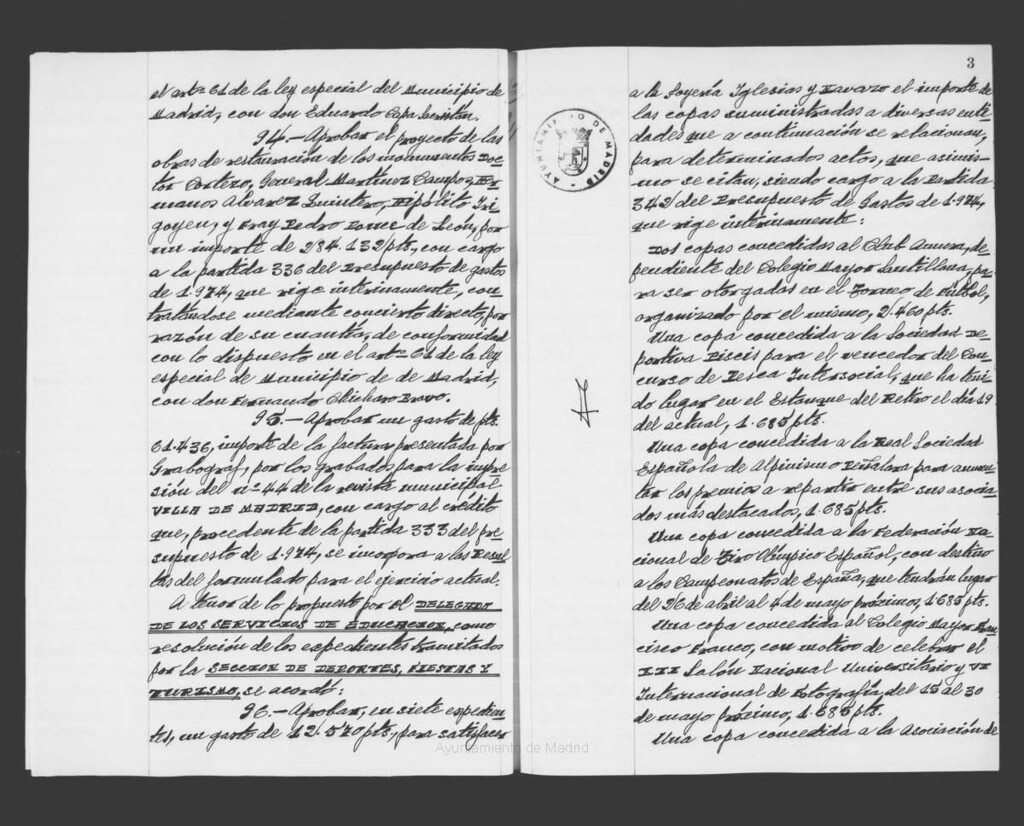 el artº 61 de la ley especial del Municipio de
Madrid, con don Eduardo Capa
94.- Aprobar el proyecto de las
obras de restauración de los monumentos Doc-
tor Cortezo, General Martínez Campos, Er-
manos Alvarez Quintero, Hipólito Iri-
goyen, y Fray Pedro Ponce de León, por
un importe de 284.132 pts, con cargo
a la partida 336 del Presupuesto de gastos
de 1.974, que rige interinamente, con-
tratándose mediante concierto directo, por
razón de su cuantía, de conformidad
con lo dispuesto en el artº 61 de la ley
especial de Municipio de de Madrid,
con don Fernando Chicharo Bravo.
95.- Aprobar un gasto de pts.
61.436, importe de la factura presentada por
Grabograf, por los grabados para la impre-
sión del nº 44 de la revista municipal
VILLA DE MADRID, con cargo al crédito
que, procedente de la partida 333 del pre-
supuesto de 1.974, se incorpora a las Resul-
tas del formulado para el ejercicio actual.
A tenor de lo propuesto por el DELEGADO
DE LOS SERVICIOS DE EDUCACION, como
resolución de los expedientes tramitados
por la SECCION DE DEPORTES, FIESTAS Y
TURISMO, se acordó:
96.- Aprobar, en siete expedien-
tes, un gasto de 12.570 pts, para satisfacer
3
a la Joyería Iglesias y Navazo el importe de
las copas suministradas a diversas enti-
dades que a continuación se relacionan,
para determinados actos, que asimis-
mo se citan, siendo cargo a la Partida
342 del Presupuesto de Gastos de 1.974,
que rige interinamente:
Dos copas concedidas al Club Amura, de-
pendiente del Colegio Mayor Santillana, pa-
ra ser otorgadas en el Torneo de Fútbol,
organizado por el mismo, 2.460 pts.
Una copa concedida a la Sociedad De-
portiva Piscis para el vencedor del Con-
curso de Pesca Intersocial, que ha teni-
do lugar en el Estanque del Retiro el día 19
del actual, 1.685 pts.
Una copa concedida a la Real Sociedad
Española de Alpinismo Peñalara para aumen-
tar los premios a repartir entre sus asocia-
dos más destacados, 1.685 pts.
Una copa concedida a la Federación Na-
cional de Tiro Olímpico Español, con destino
a los Campeonatos de España, que tendrán lugar
del 26 de abril al 4 de mayo próximos, 1.685 pts.
Una copa concedida al Colegio Mayor Fran-
cisco Franco, con motivo de celebrar el
III Salón Nacional Universitario y VI
Internacional de Fotografía, del 15 al 30
de mayo próximo, 1.685 pts.
Una copa concedida a la Asociación de
AYUNTAMIENTO DE MADRID
Ayuntamiento de Madrid